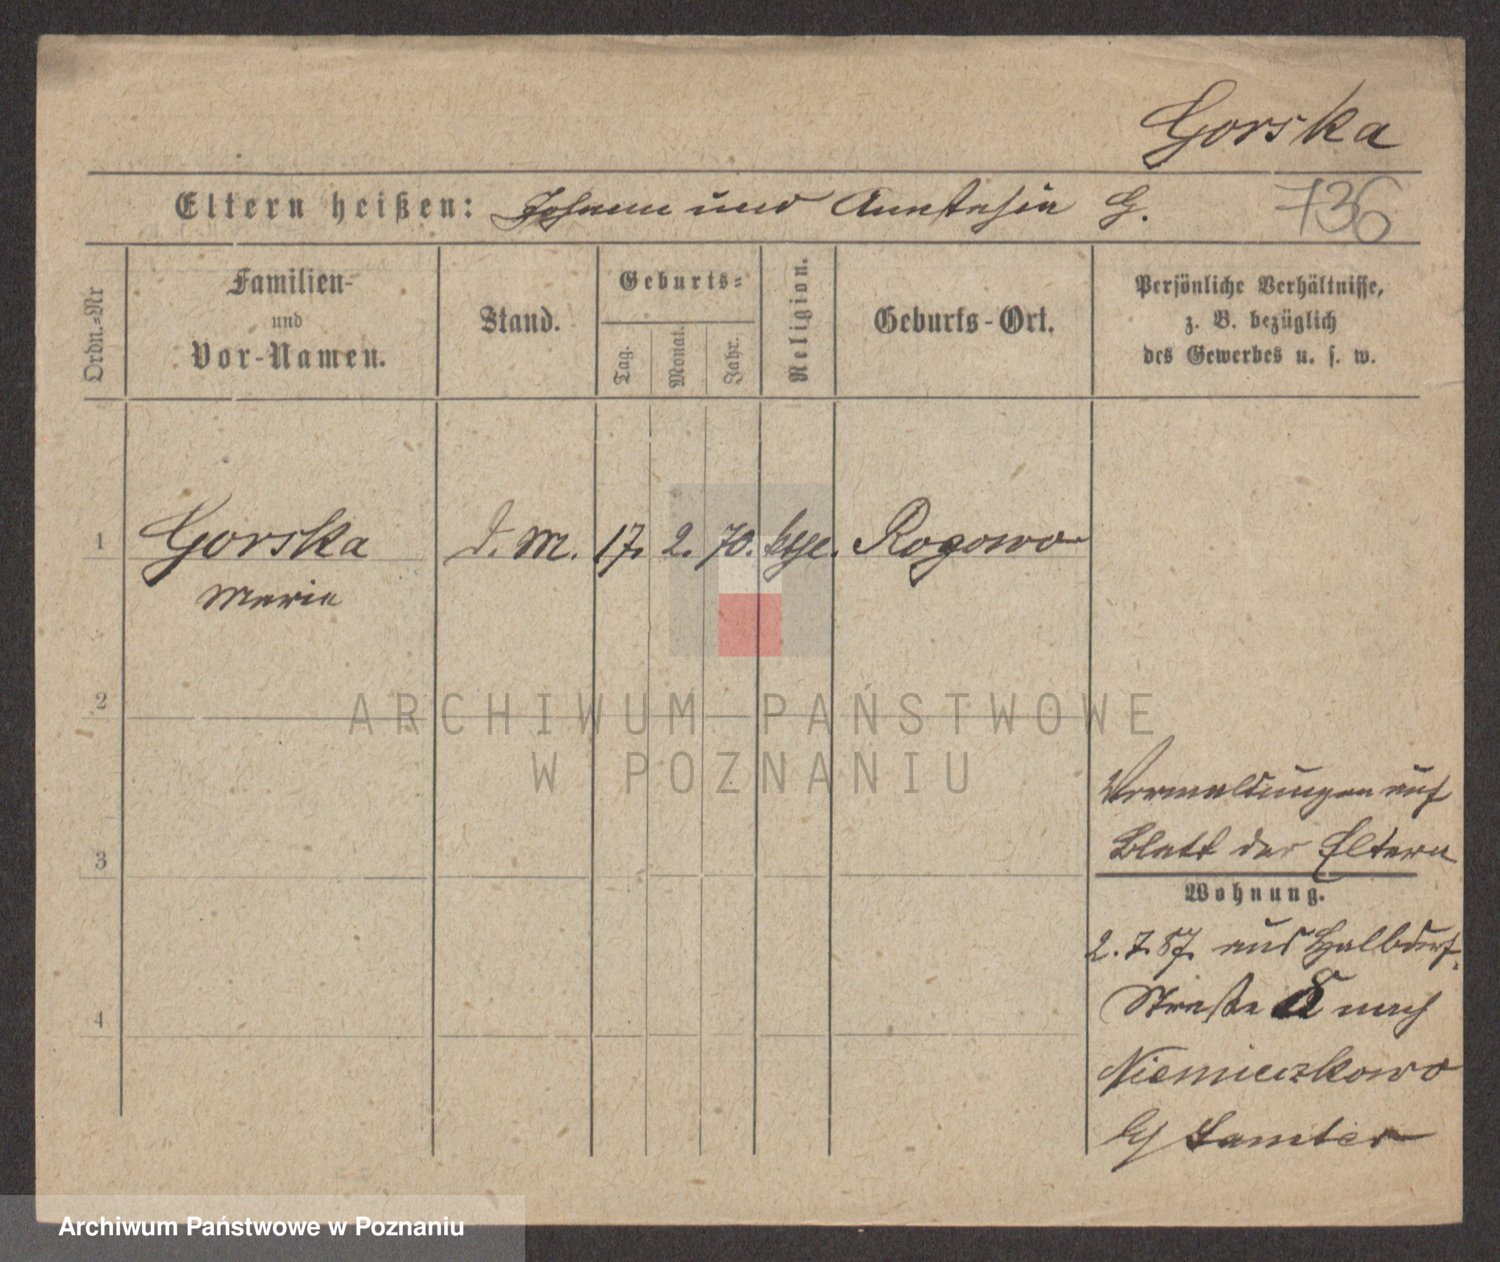 Gorska
Eltern heißen: Johann und Anastasia G. 736
Ordn.-Nr
Familien-
und
Vor-Namen.
Stand.
Geburts-
Tag. Monat. Jahr.
Religion.
Geburts-Ort.
Persönliche Verhältnisse,
z. B. bezüglich
des Gewerbes u. s. w.
1 Gorska d. M. 17. 2. 70. ktge. Rogowo
Marie
2
ARCHIWUM PAŃSTWOWE
W POZNANIU
Vermeldungen auf
3 Blatt der Eltern
Wohnung.
2. 7. 87. aus Halbdorf-
4 Straße 8 nach
Niemieczkowo
Samter
Archiwum Państwowe w Poznaniu